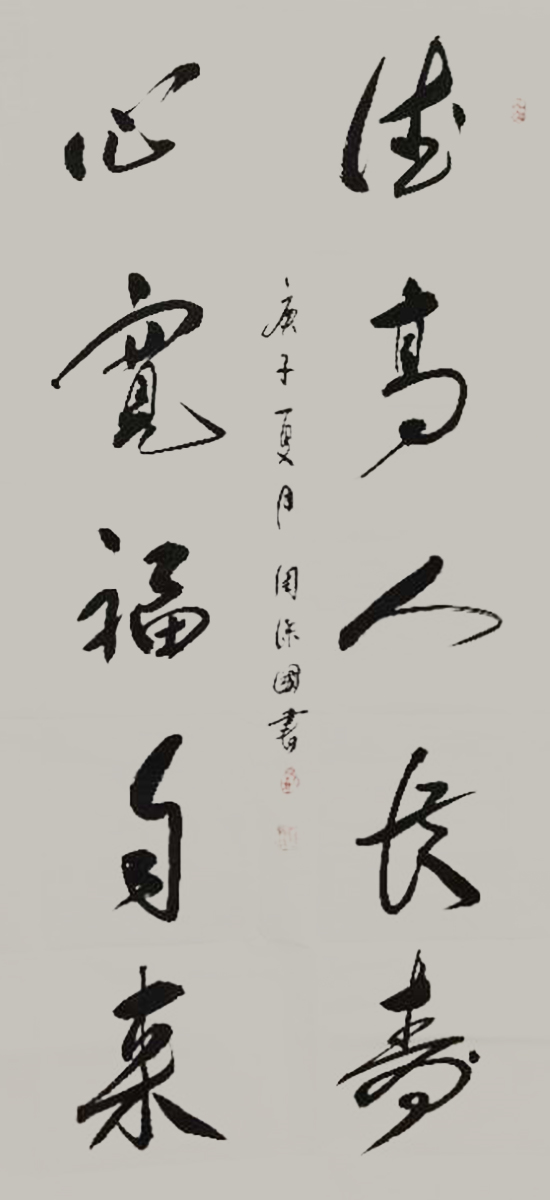 德高人长寿
心寬福自来
庚子夏月周保國書